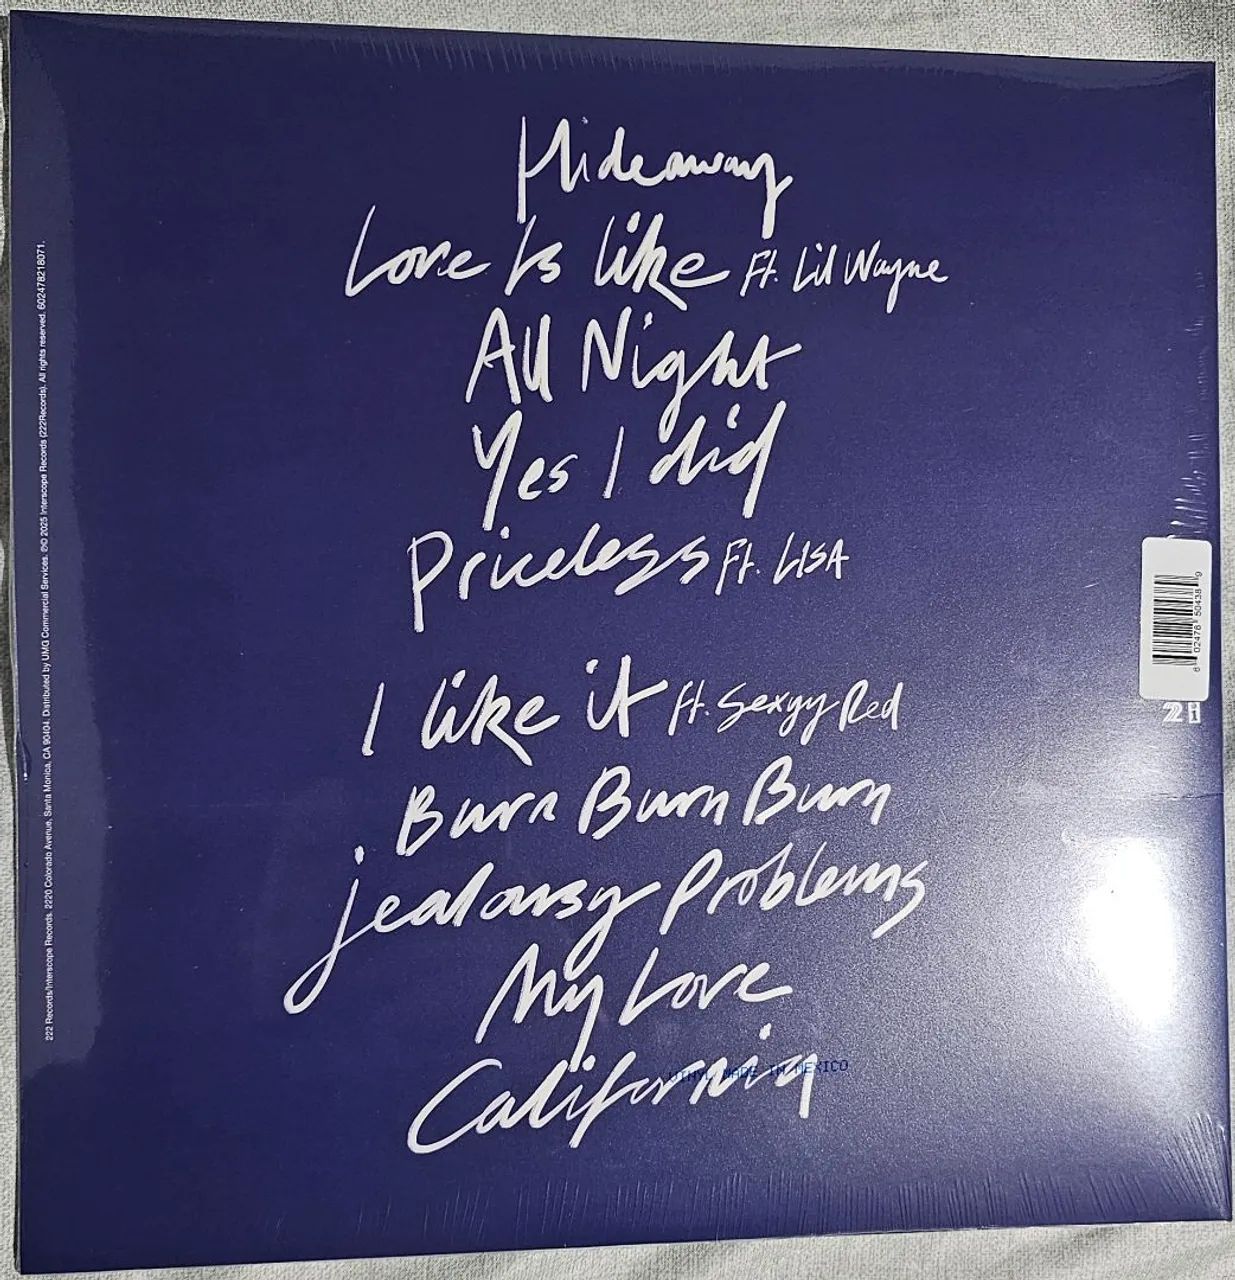 Hideaway
Love Is like Ft. Lil Wayne
All Night
Yes I did
Priceless Ft. LISA
I like it ft. Sexyy Red
Burn Burn Burn
jealousy Problems
My Love
California
VINYL MADE IN MEXICO
222 Records/Interscope Records. 2220 Colorado Avenue, Santa Monica, CA 90404. Distributed by UMG Commercial Services. ℗© 2025 Interscope Records (222Records). All rights reserved. 602478218071.
6 02478 50438 9
2 i